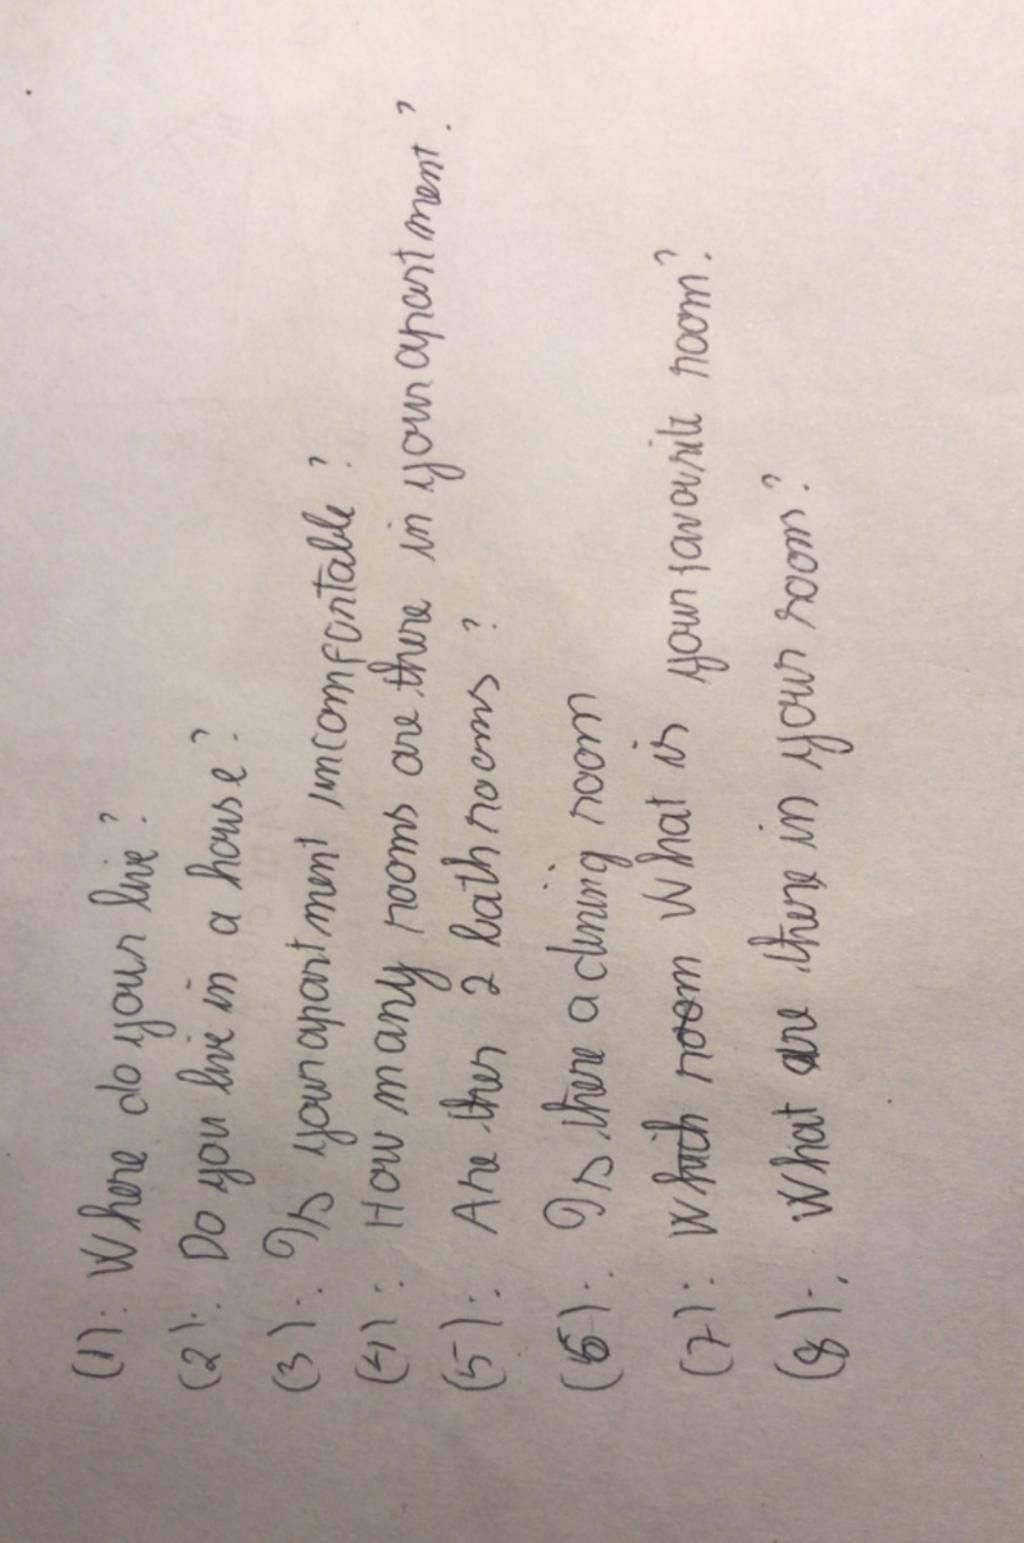 (1): Where do your live?
(2): Do you live in a house?
(3): Is your apartment uncomfortable?
(4): How many rooms are there in your apartment?
(5): Are ther 2 bathrooms?
(6): Is there a dining room
(7): Which room What is your favourite room?
(8): What are there in your room?